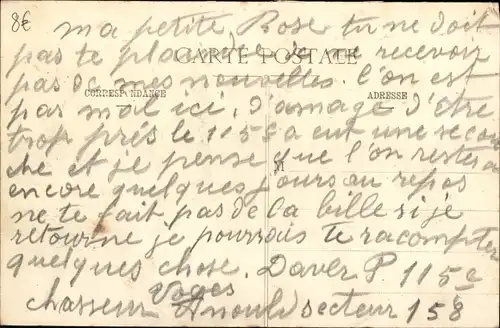 8€
ma petite Rose tu ne doit
pas te plac que je ne recevoir
CARTE POSTALE
pas de mes nouvelles. l'on est
CORRESPONDANCE
ADRESSE
pas mal ici, d'amage d'être
trop prés le 115 e a eut une secou
che et je pense que l'on restes a
M
encore quelques jours au repos
ne te fait pas de la bille si je
retourne je pourrais te racompter
quelques chose. Daver P. 115e
chasseur Anould secteur 158
Voges